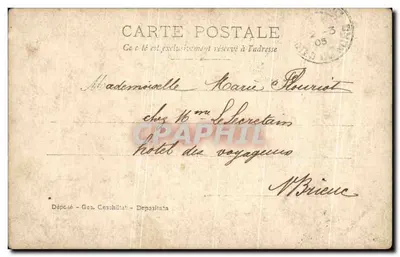 CARTE POSTALE
Ce côté est exclusivement réservé à l'adresse
-3
05
Mademoiselle Marie Flouriot
chez Mme Le Secretain
CPAPHIL
hotel des voyageurs
St Brieuc
Déposé - Ges. Geschützt - Deposbata